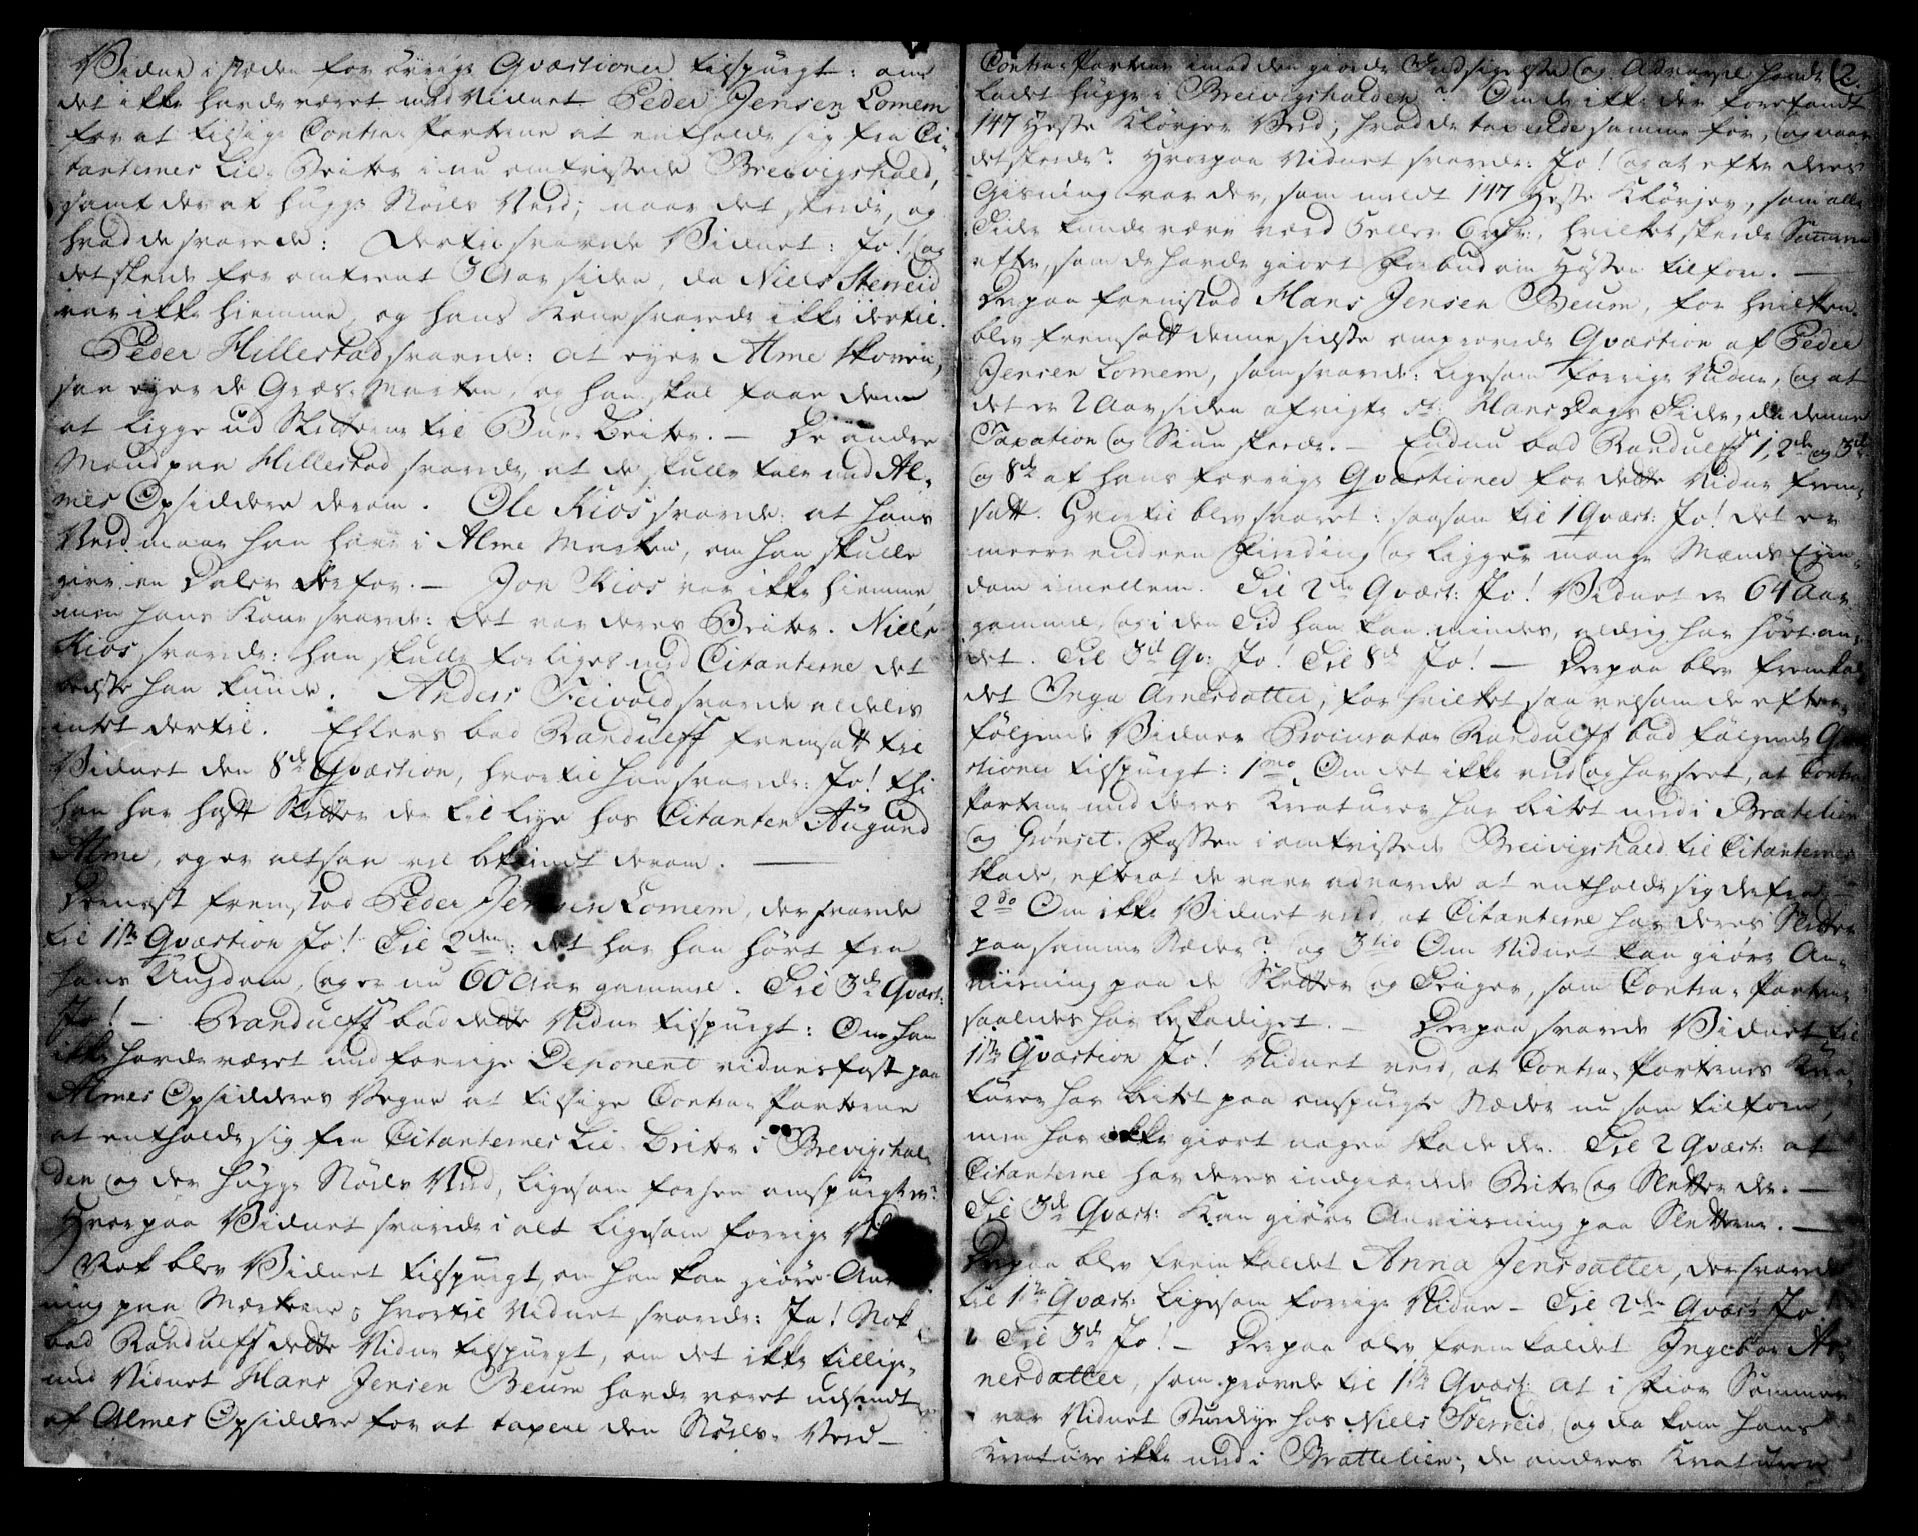 Vidne i stæden for øvrige Qvæstioner tilspurgt: om
det ikke havde været med Vidnet Peder Jensen Lomem
for at tilsige Contra-Parterne at entholde sig fra Ci-
tanternes Lie-Beiter i nu omtvistede Breivigshald,
samt der at hugge Røils Ved; naar det skeede, og
hvad de svarede: Dertil svarede Vidnet: Jo! og
det skeede for omtrent 3 Aar siden, da Niels Sterreid
var ikke hiemme, og hans Kone svarede ikke dertil.
Peder Hillestad svarede: at eyer Alme Skoven,
saa eyer de Græs-Marken, og han skal faae dem
at ligge ud Sletterne til Bue-Beiter. — De andre
Mænd paa Hillestad svarede, at de skulle tale med Al-
mes Opsiddere derom. Ole Kios svarede: at hans
Ved maae han have i Alme Marken, om han skulle
give en Daler derfor. — Jon Kios var ikke hiemme,
men hans Kone svarede: det var deres Beiter. Niels
Kios svarede: han skulle forliges med Citanterne det
bedste han kunde. Anders Feivold svarede aldeles
intet dertil. Ellers bad Randulff fremsatt til
Vidnet den 8de Qvæstion, hvortil han svarede: Jo! thi
han har hafft Sletter der til leye hos Citanten Augund
Alme, og er altsaa vel bekiendt derom. —
Dernest fremstod Peder Jensen Lomem, der svarede
til 1ste Qvæstion Jo! Til 2den: det har han hørt fra
hans Ungdom, og er nu 60 Aar gammel. Til 3de Qvæst:
Jo! — Randulff bad dette Vidne tilspurgt: Om han
ikke havde været med forrige Deponent vidnesfast paa
Almes Opsidderes Vegne at tilsige Contra-Parterne
at entholde sig fra Citanternes Lie-Beiter i Brevigshal-
den og der hugge Røils Ved, ligesom forhen omspurgt er?
Hvorpaa Vidnet svarede i alt ligesom forrige
Nok blev Vidnet tilspurgt, om han kan giøre
ning paa Mærkerne; hvortil Vidnet svarede: Ja! Nok
bad Randulff dette Vidne tilspurgt, om det ikke tillige-
med Vidnet Hans Jensen Beum havde været udsendt
af Almes Opsiddere for at taxere den Røils-Ved —
2.
Contra-Parterne imod den giorde Indsigelse og Advarsel havde
ladet hugge i Breivigshalden? Om de ikke der forefandt
147 Heste Kløvjer Ved; hvad de taxerede samme for, og naar
det skeede? Hvorpaa Vidnet svarede: Jo! og at efter deres
Gisning var der, som meldt 147 Heste Kløvjer, som alle
Tider kunde være værd 5 eller 6 rdr:, hvilket skeede Sommeren
efter, som de havde giort Forbud om Høsten tilforn. —
Derpaa fremstod Hans Jensen Beum, for hvilken
blev fremsatt denne sidste omprøvede Qvæstion af Peder
Jensen Lomem, som svarede: ligesom forrige Vidne, og at
det er 2 Aar siden afvigte St: Hans Dags Tider, da denne
Taxation og Siun skeede. — Endnu bad Randulff 1, 2den og 3die
og 8de af hans forrige Qvæstioner for dette Vidne frem-
satt. Hvortil blev svaret: saasom til 1 Qvæst: Jo! det er
meere end een Fierding og ligger mange Mænds Eyen-
dom imellem. Til 2de Qvæst: Jo! Vidnet er 64 Aar
gammel, og i den Tid han kan mindes, aldrig har hørt an-
det. Til 3de Qv: Jo! Til 8de Jo! — Derpaa blev fremkal-
det Inga Arnesdatter, for hvilket saavelsom de efter-
følgende Vidner Procurator Randulff bad følgende Qvæ-
stioner tilspurgt: 1mo Om det ikke veed og har seet, at Contra
Parterne med deres Kreaturer har beitet ned i Bratelien
og Grønset Høssen i omtvistede Breivigshald til Citanternes
Skade, efterat de vare advarede at entholde sig derfra. —
2do Om ikke Vidnet veed, at Citanterne har deres Sletter
paa samme Stæder? og 3tio Om Vidnet kan giøre An-
viisning paa de Sletter og Teiger, som Contra-Parterne
saaledes har beskadiget. — Derpaa svarede Vidnet til
1ste Qvæstion Jo! Vidnet veed, at Contra-Parternes Krea-
turer har beitet paa omspurgte Stæder nu som tilforn,
men har ikke giort nogen Skade der. Til 2 Qvæst: at
Citanterne har deres indgiærdede Beiter og Sletter der. —
Til 3de Qvæst: Kan giøre Anviisning paa Sletterne. —
Derpaa blev fremkaldet Anna Jensdatter, der svarede
til 1ste Qvæst: ligesom forrige Vidne — Til 2den Qvæst: Jo!
Til 3de Jo! — Derpaa blev fremkaldet Ingebor Ar-
nesdatter, som prøvede til 1ste Qvæst: at i fior Sommer
var Vidnet Budeye hos Niels Sterreid, og da kom hans
Kreature ikke ned i Brattelien; de andres Kreaturer